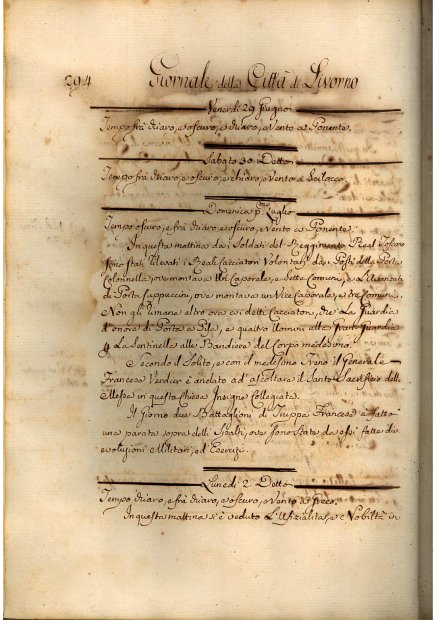 294 Giornale della Città di Livorno
Venerdì 29 Giugno
Tempo frà chiaro, e oscuro, e chiaro, e Vento a Ponente.
Sabato 30 Detto
Tempo frà chiaro, e oscuro, e chiaro, e Vento à Scilocco.
Domenica p.mo Luglio
Tempo oscuro, e frà chiaro, e oscuro, e Vento a Ponente.
In questa mattina dai Soldati del Reggimento Real Toscano
sono stati rilevati i Reali Cacciatori Volontarj dai Posti della Porta
Colonnella, ove montava Un Caporale, e Sette Comuni, e
di Porta Cappuccini, ove montava un Vice Caporale, e tre Comuni.
Non gli rimane altro ora così detti Cacciatori, che La Guardia
d'onore di Porta a Pisa, e quattro Uomini alla Gran Guardia
p La Sentinella alle Bandiere del Corpo medesimo.
Secondo il Solito, e con il medesimo Treno il Generale
Francese Verdier è andato ad' ascoltare il Santo Sacrificio della
Messa in questa Chiesa Insigne Collegiata.
Il Giorno due Battaglioni di Truppa Francese à fatto
una parata sopra delli Spalti, ove sono state da essi fatte di
evoluzioni Militari, ed Esercizj.
Lunedì 2. Detto
Tempo chiaro, e frà chiaro, e oscuro, e Vento a Greco.
In questa mattina si è veduto L'Ufizialità, e Nobiltà in